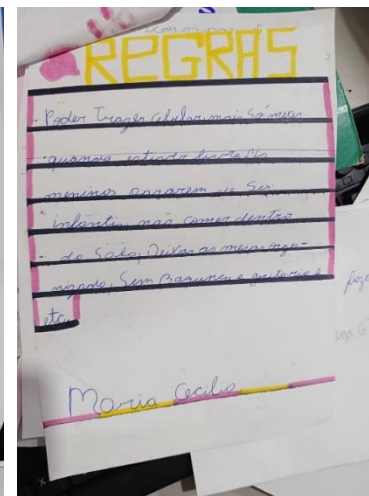 REGRAS
- Poder Trazer celular, mais só mexer
quando estiver
meninos pararem de Ser
infantis, não comer dentro
- da Sala, Deixar as mesas orga-
nizada, Sem Bagunça e gritaria e
etc.
Maria Cecilia